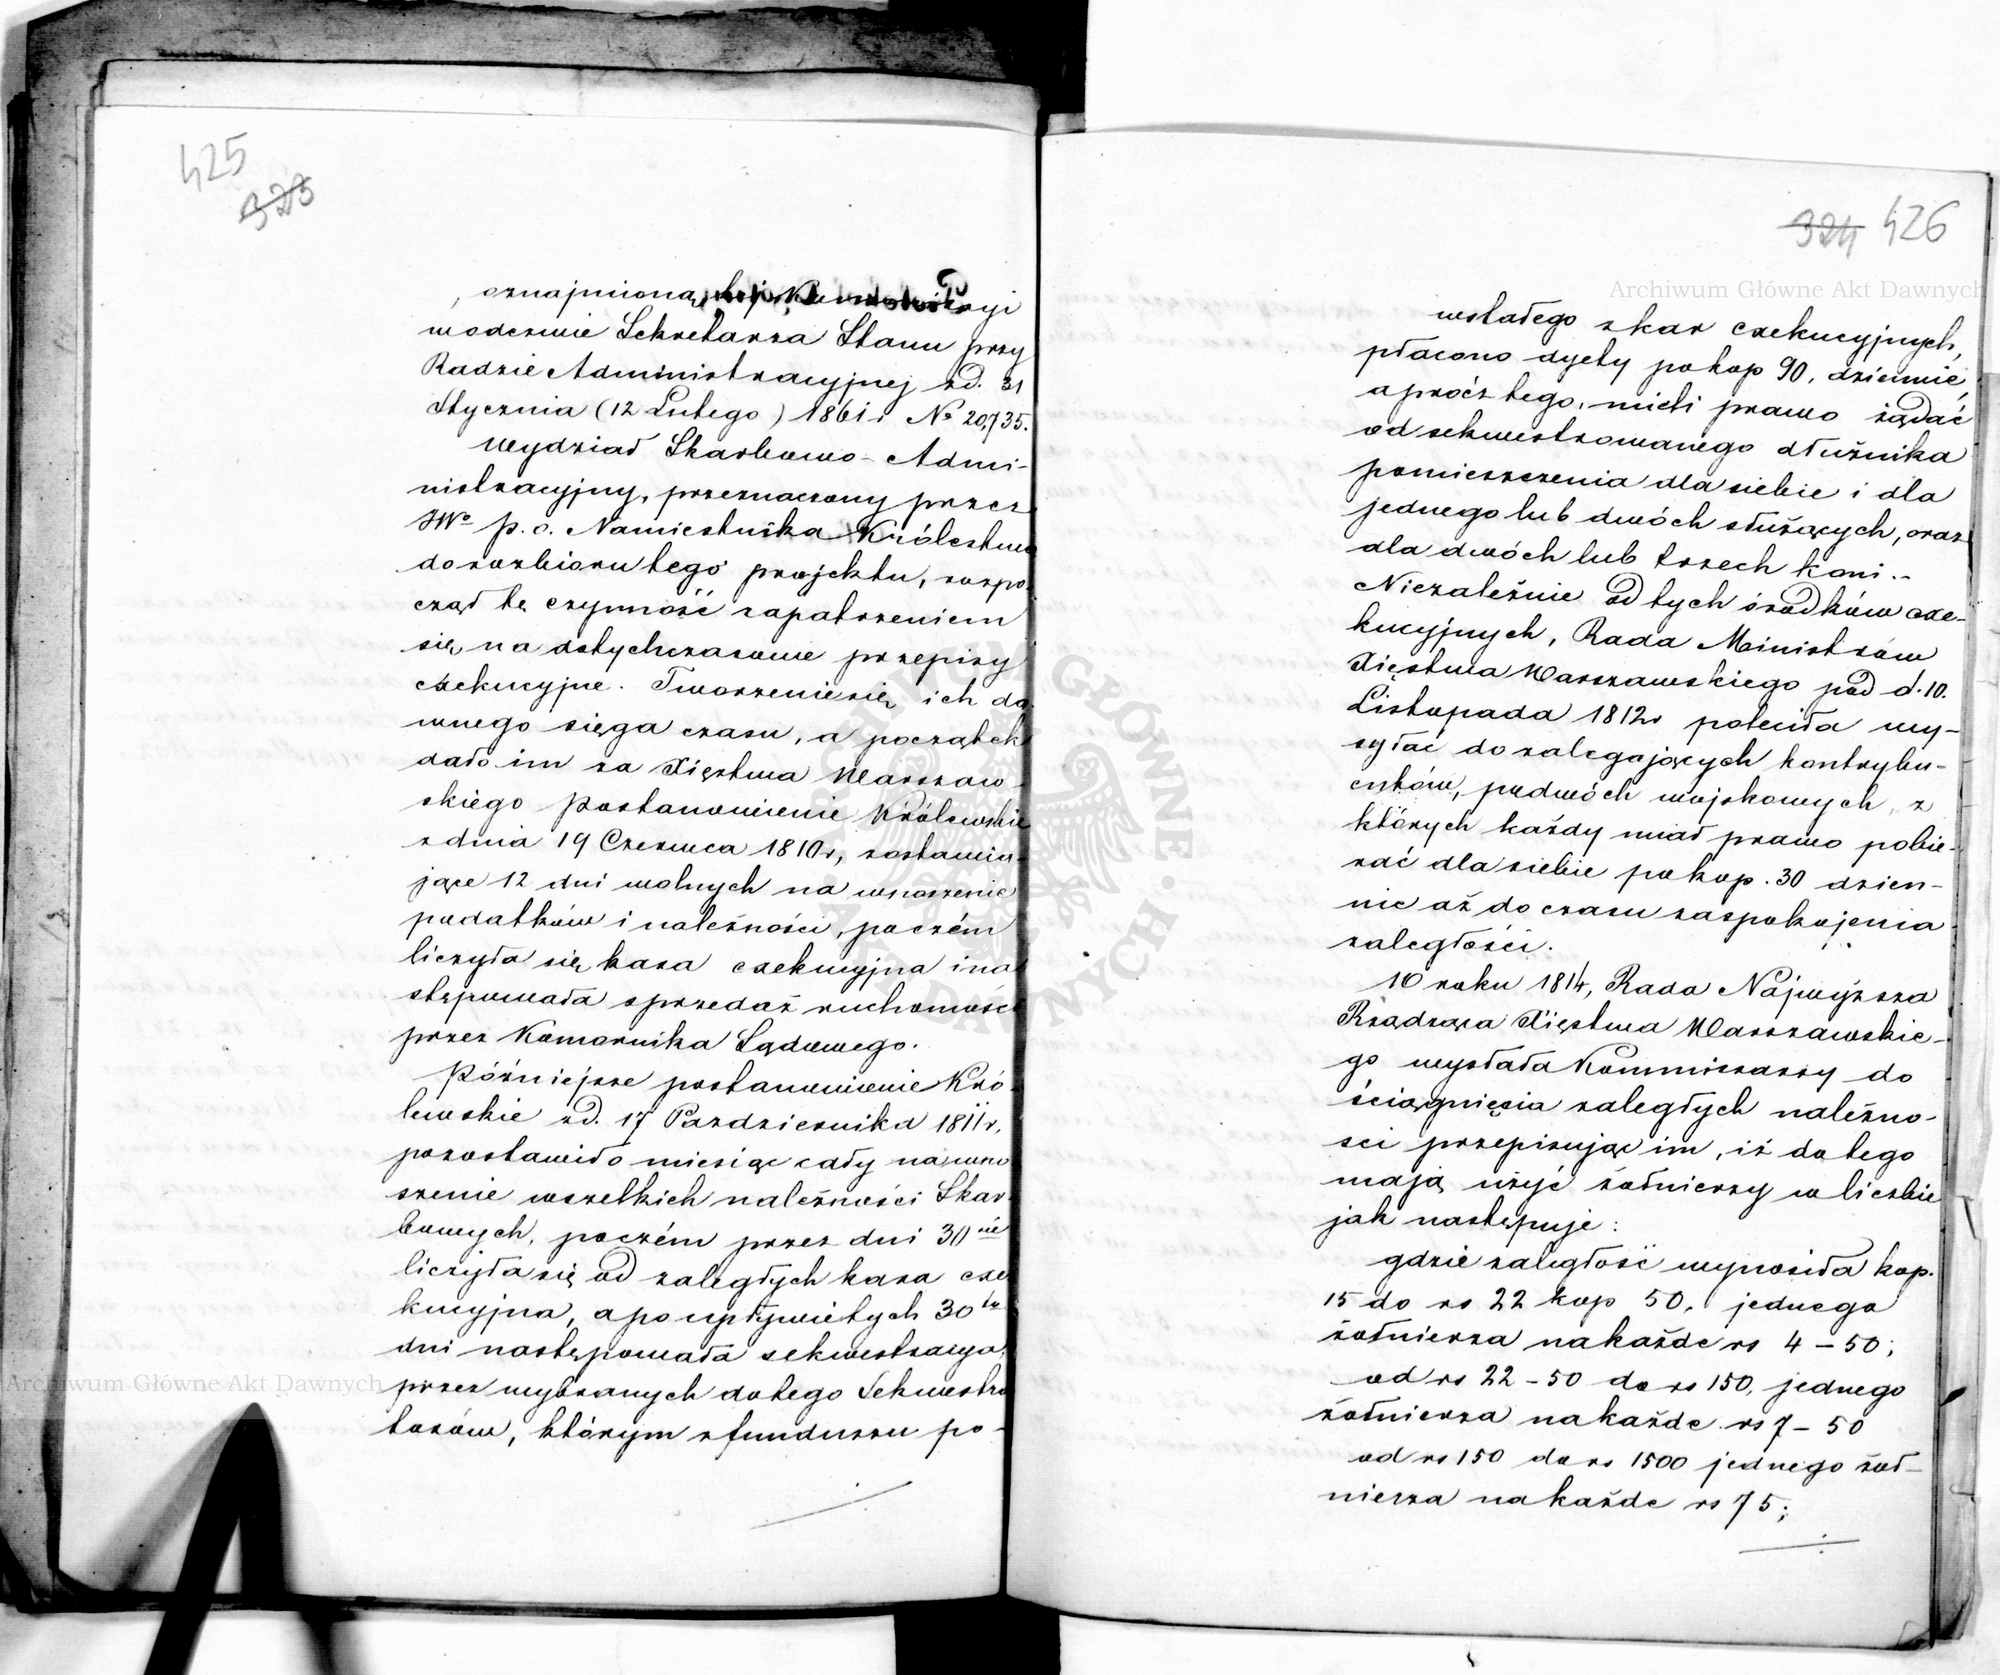 425
323
oznajmioną tej Kommissyi
w odezwie Sekretarza Stanu przy
Radzie Administracyjnej z d. 31
Stycznia (12 Lutego) 1861 r. No 20,735.
Wydział Skarbowo-Admi-
nistracyjny, przeznaczony przez
JWo p. o. Namiestnika Królestwa
do rozbioru tego projektu, rozpo-
czął tę czynność zapatrzeniem
się na dotychczasowe przepisy
exekucyjne. Tworzenie się ich da-
wnego sięga czasu, a początek
dało im za Xięstwa Warszaw-
skiego postanowienie Królewskie
z dnia 19 Czerwca 1810 r, zostawia-
jące 12 dni wolnych na wnoszenie
podatków i należności, poczém
liczyła się kara exekucyjna i na-
stępowała sprzedaż ruchomości
przez Komornika Sądowego.
Późniejsze postanowienie Kró-
lewskie z d. 17 Października 1811 r.
pozostawiło miesiąc cały na wno-
szenie wszelkich należności Skar-
bowych, poczém przez dni 30 ści
liczyła się od zaległych kara exe-
kucyjna, a po upływie tych 30tu
dni następowała sekwestracya,
przez wybranych do tego Sekwestra-
torów, którym z funduszu po-
324 426
Archiwum Główne Akt Dawnych
wstałego z kar exekucyjnych,
płacono dyety po kop 90, dziennie,
a prócz tego, mieli prawo żądać
od sekwestrowanego dłużnika
pomieszczenia dla siebie i dla
jednego lub dwóch służących, oraz
dla dwóch lub trzech koni.
Niezależnie od tych środków exe-
kucyjnych, Rada Ministrów
Xięstwa Warszawskiego pod d. 10.
Listopada 1812 r poleciła wy-
syłać do zalegających kontrybu-
entów, po dwóch wojskowych, z
których każdy miał prawo pobie-
rać dla siebie po kop. 30 dzien-
nie aż do czasu zaspokojenia
zaległości.
W roku 1814, Rada Najwyższa
Rządząca Xięstwa Warszawskie-
go wysłała Kommissarzy do
ściągnięcia zaległych należno-
sci przepisując im, iż do tego
mają użyć żołnierzy w liczbie
jak następuje:
gdzie zaległość wynosiła kop.
15 do rs 22 kop 50, jednego
żołnierza na każde rs 4 – 50;
od rs 22 – 50 do rs 150, jednego
żołnierza na każde rs 7 – 50
od rs 150 do rs 1500 jednego żoł-
nierza na każde rs 75;
Archiwum Główne Akt Dawnych
ARCHIWUM GŁÓWNE AKT DAWNYCH